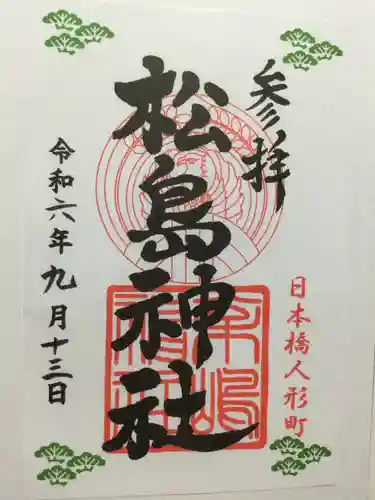 参拝
日本橋人形町
松島神社
令和六年九月十三日